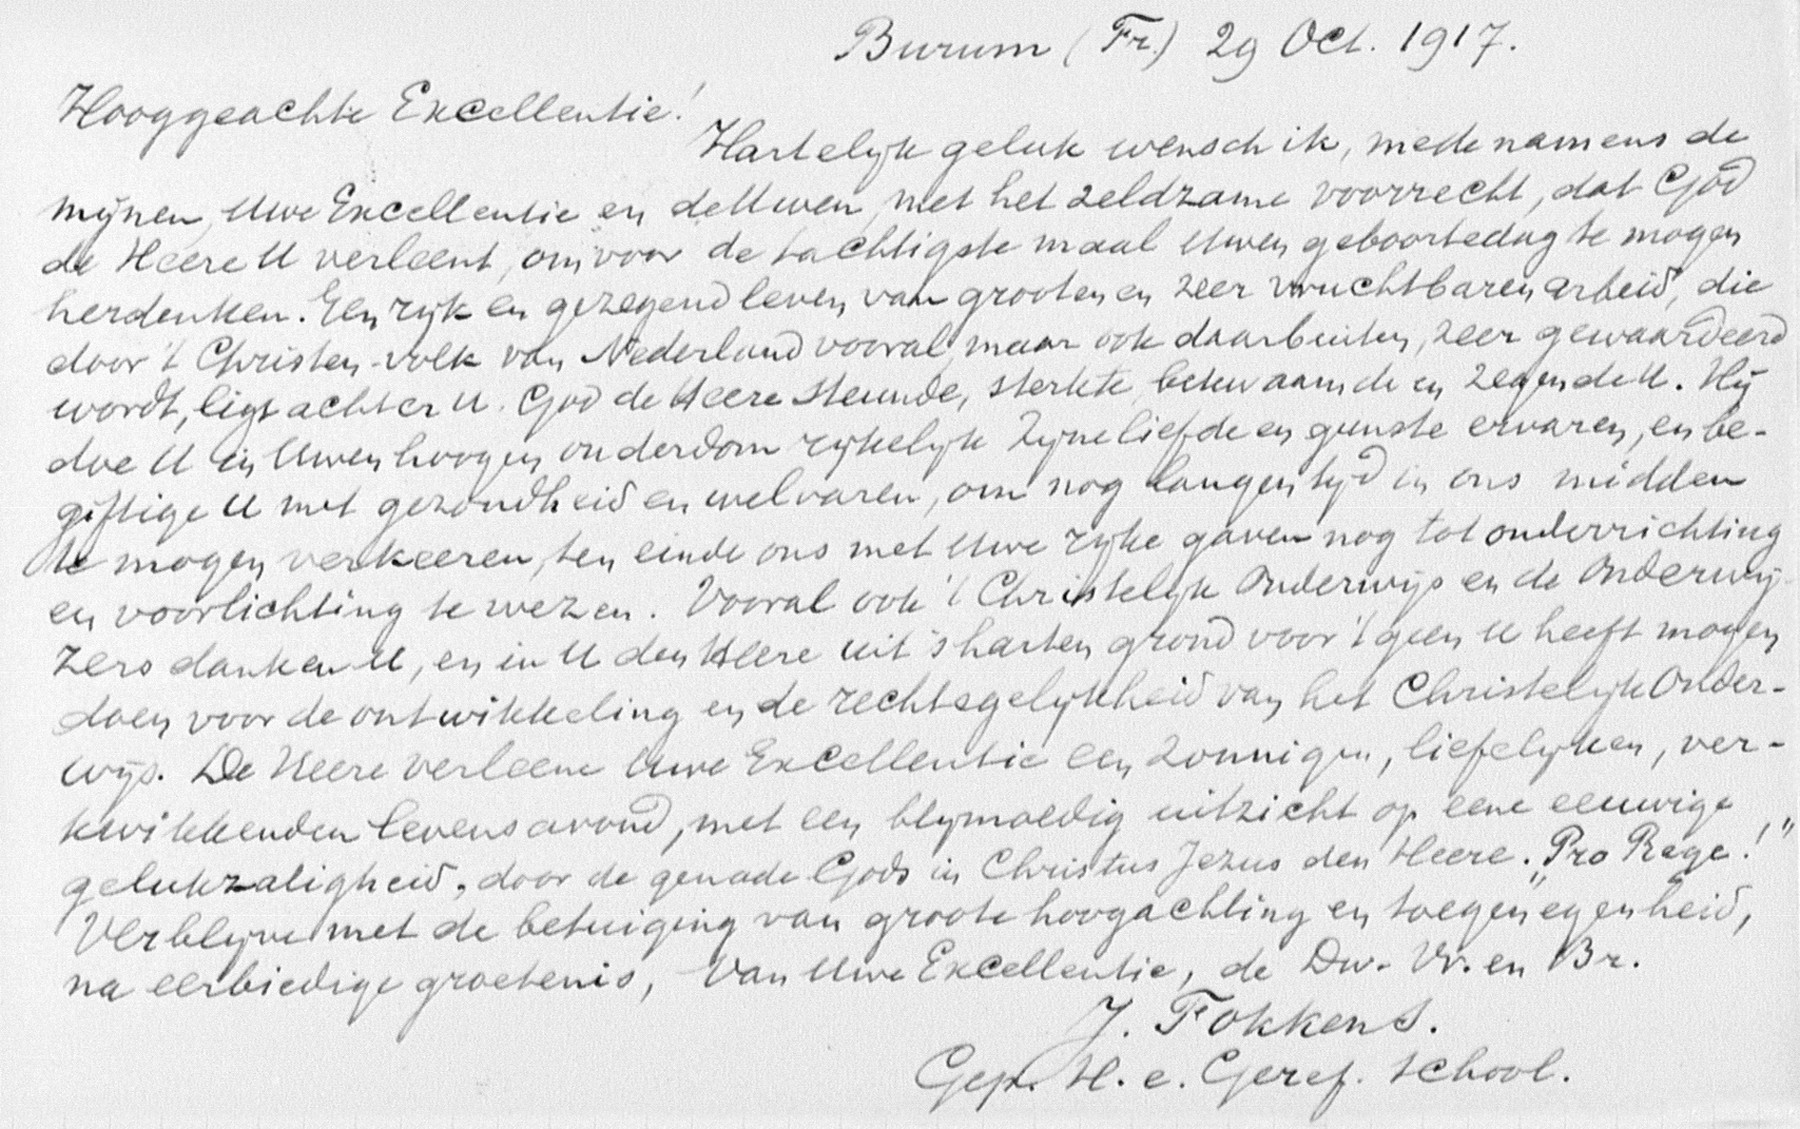 Burum (Fr.) 29 Oct. 1917.
Hooggeachte Excellentie!
Hartelijk geluk wensch ik, mede namens de
mijnen, Uwe Excellentie en de Uwen, met het zeldzame voorrecht, dat God
de Heere U verleent, om voor de tachtigste maal Uwen geboortedag te mogen
herdenken. Een rijk en gezegend leven van grooten en zeer vruchtbaren arbeid, die
door 't Christen-volk van Nederland vooral, maar ook daarbuiten, zeer gewaardeerd
wordt, ligt achter U. God de Heere steunde, sterkte, bekwaamde en zegende U. Hij
doe U in Uwen hoogen ouderdom rijkelijk Zijne liefde en gunste ervaren, en be-
giftige U met gezondheid en welvaren, om nog langen tijd in ons midden
te mogen verkeeren, ten einde ons met Uwe rijke gaven nog tot onderrichting
en voorlichting te wezen. Vooral ook 't Christelijk Onderwijs en de Onderwij-
zers danken U, en in U den Heere uit 's harten grond voor 't geen U heeft mogen
doen voor de ontwikkeling en de rechtsgelijkheid van het Christelijk Onder-
wijs. De Heere verleene Uwe Excellentie een zonnigen, liefelijken, ver-
kwikkenden levensavond, met een blijmoedig uitzicht op eene eeuwige
gelukzaligheid, door de genade Gods in Christus Jezus den Heere. „Pro Rege!"
Verblijve met de betuiging van groote hoogachting en toegenegenheid,
na eerbiedige groetenis, Van Uwe Excellentie, de Dw. Vr. en Br.
J. Fokkens.
Gep. H. e. Geref. School.